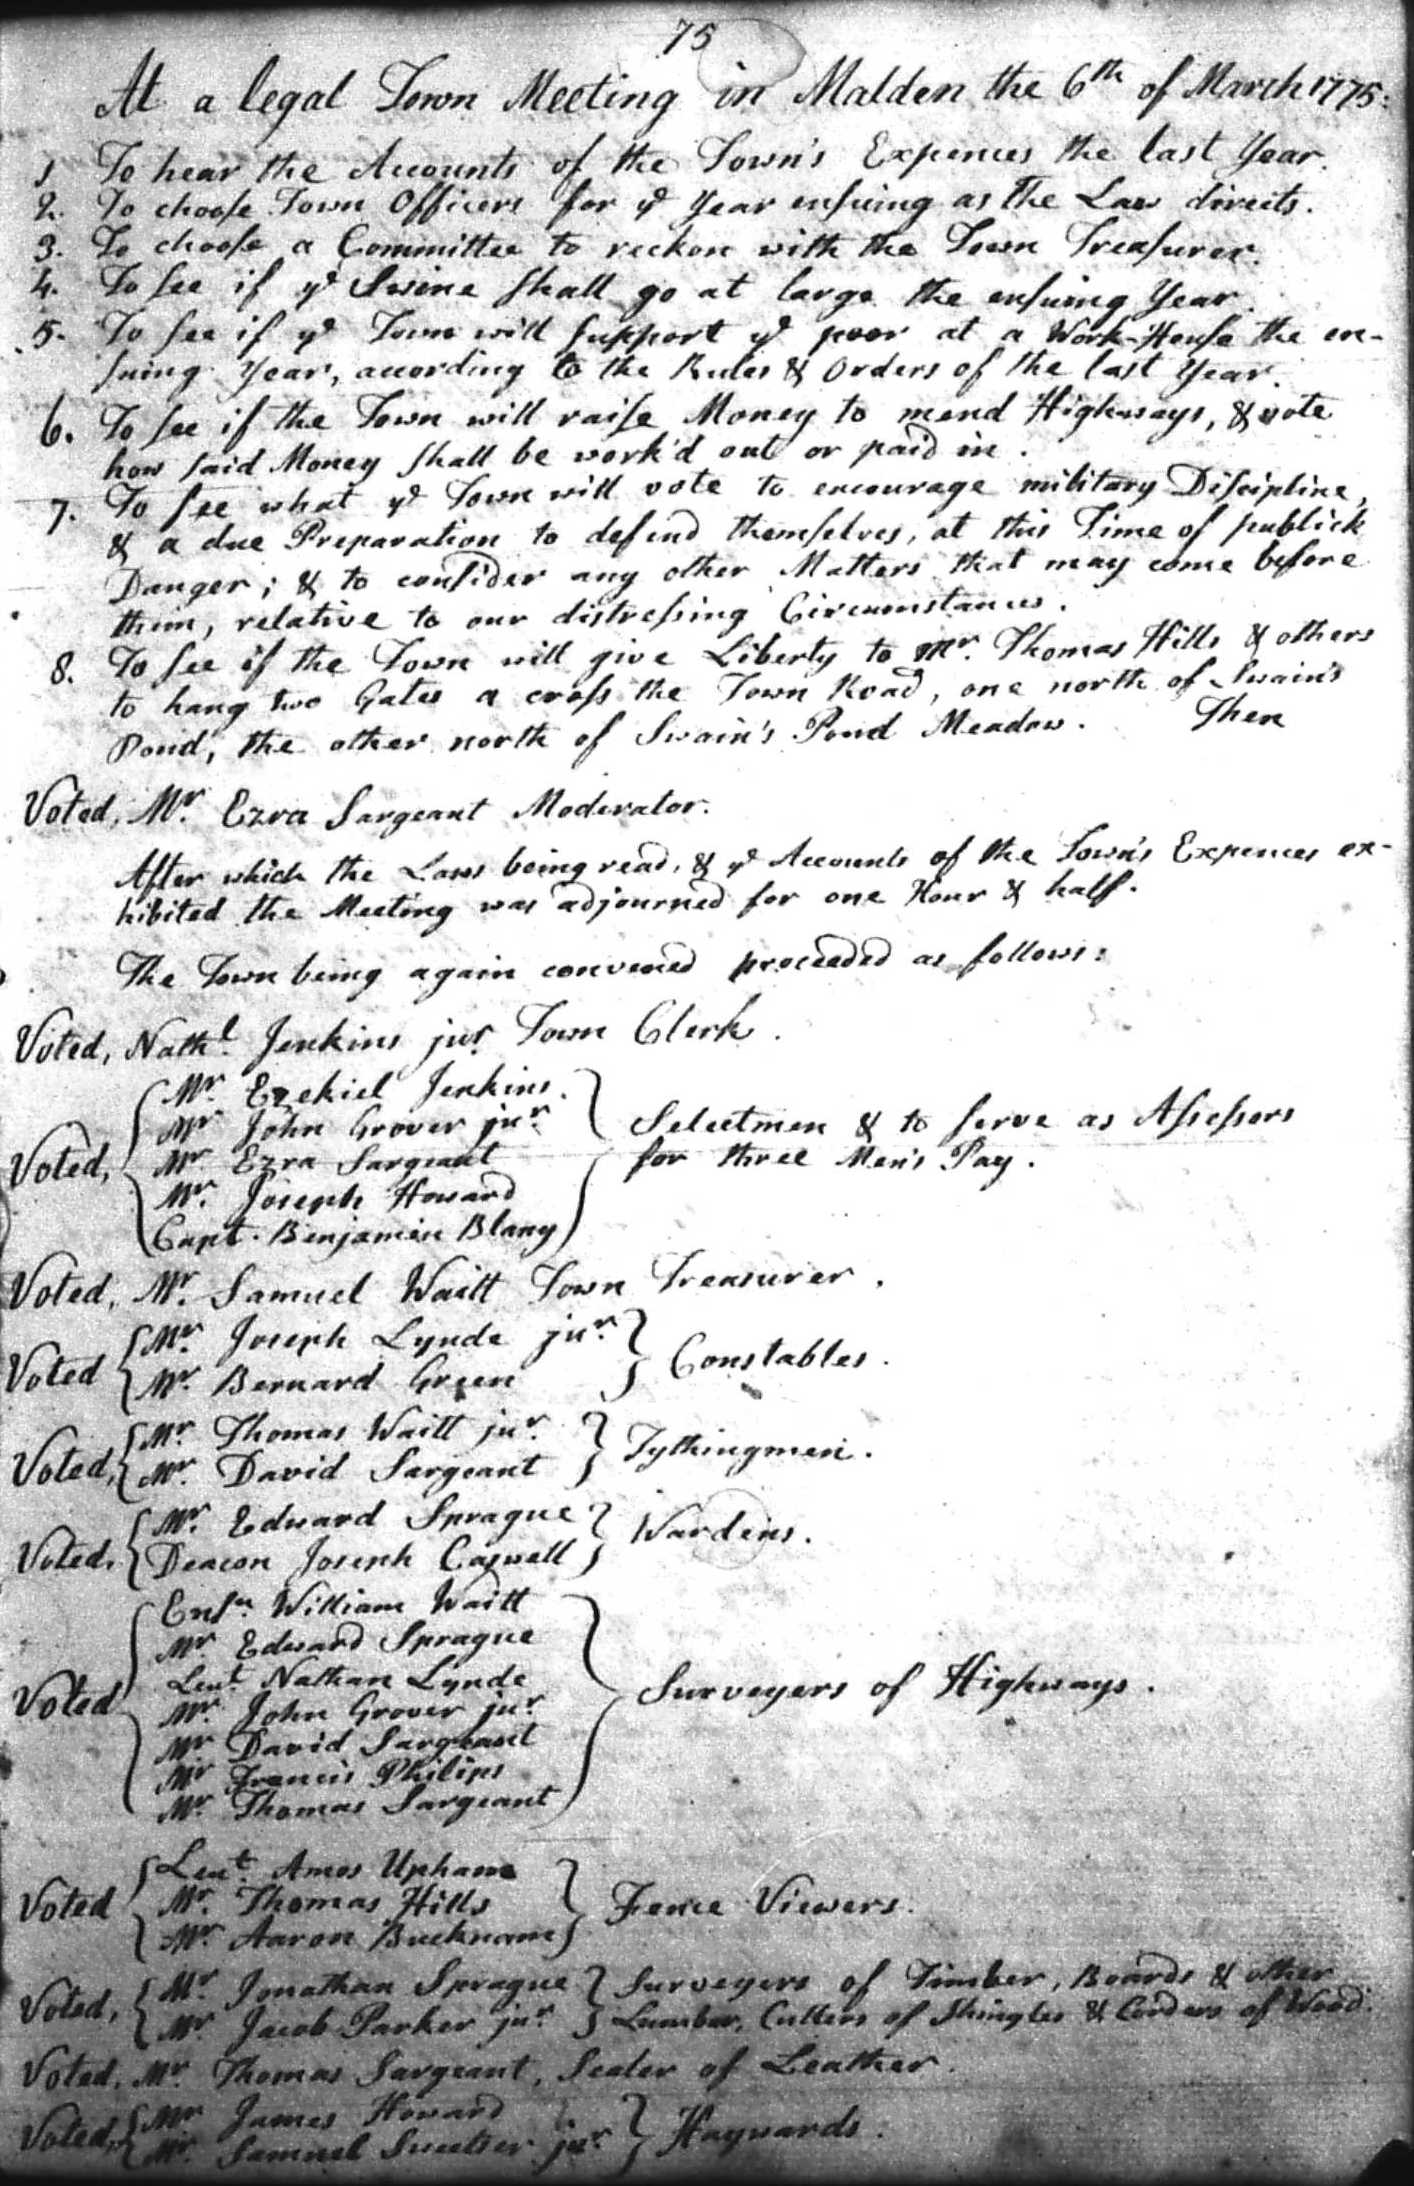 75
At a legal Town Meeting in Malden the 6th of March 1775:
1 To hear the Accounts of the Town's Expences the last Year.
2. To chooſe Town Officers for ye Year enſuing as the Law directs.
3. To chooſe a Committee to reckon with the Town Treaſurer.
4. To ſee if ye Swine ſhall go at large the enſuing Year.
5. To ſee if ye Town will ſupport ye poor at a Work-Houſe the en-
ſuing Year, according to the Rules & Orders of the last Year.
6. To ſee if the Town will raiſe Money to mend Highways, & vote
how ſaid Money ſhall be work'd out or paid in.
7. To ſee what ye Town will vote to encourage military Diſcipline,
& a due Preparation to defend themſelves, at this Time of publick
Danger; & to conſider any other Matters that may come before
them, relative to our distreſsing Circumstances.
8. To ſee if the Town will give Liberty to Mr. Thomas Hills & others
to hang two Gates a croſs the Town Road, one north of Swain's
Pond, the other north of Swain's Pond Meadow. Then
Voted, Mr. Ezra Sargeant Moderator.
After which the Laws being read, & ye Accounts of the Town's Expences ex-
hibited the Meeting was adjourned for one Hour & half.
The Town being again convened proceeded as follows:
Voted, Nathl. Jenkins junr. Town Clerk.
Mr. Ezekiel Jenkins.
Mr. John Grover junr.
Voted, Mr. Ezra Sargeant
Mr. Joseph Howard
Capt. Benjamin Blany
Selectmen & to ſerve as Aſseſsors
for three Men's Pay.
Voted, Mr. Samuel Waitt Town Treasurer.
Voted Mr. Joseph Lynde junr.
Mr. Bernard Green
Constables.
Voted, Mr. Thomas Waitt junr.
Mr. David Sargeant
Tythingmen.
Voted, Mr. Edward Sprague
Deacon Joseph Caswell
Wardens.
Enſn. William Waitt
Mr. Edward Sprague
Leut. Nathan Lynde
Voted Mr. John Grover junr.
Mr. David Sargeant
Mr. Francis Philips
Mr. Thomas Sargeant
Surveyers of Highways.
Leut. Amos Upham
Voted Mr. Thomas Hills
Mr. Aaron Bucknam
Fence Viewers.
Voted, Mr. Jonathan Sprague
Mr. Jacob Parker junr.
Surveyers of Timber, Boards & other
Lumber, Cullers of Shingles & Corders of Wood.
Voted, Mr. Thomas Sargeant, Sealer of Leather.
Voted, Mr. James Howard
Mr. Samuel Sweetser junr.
Haywards.